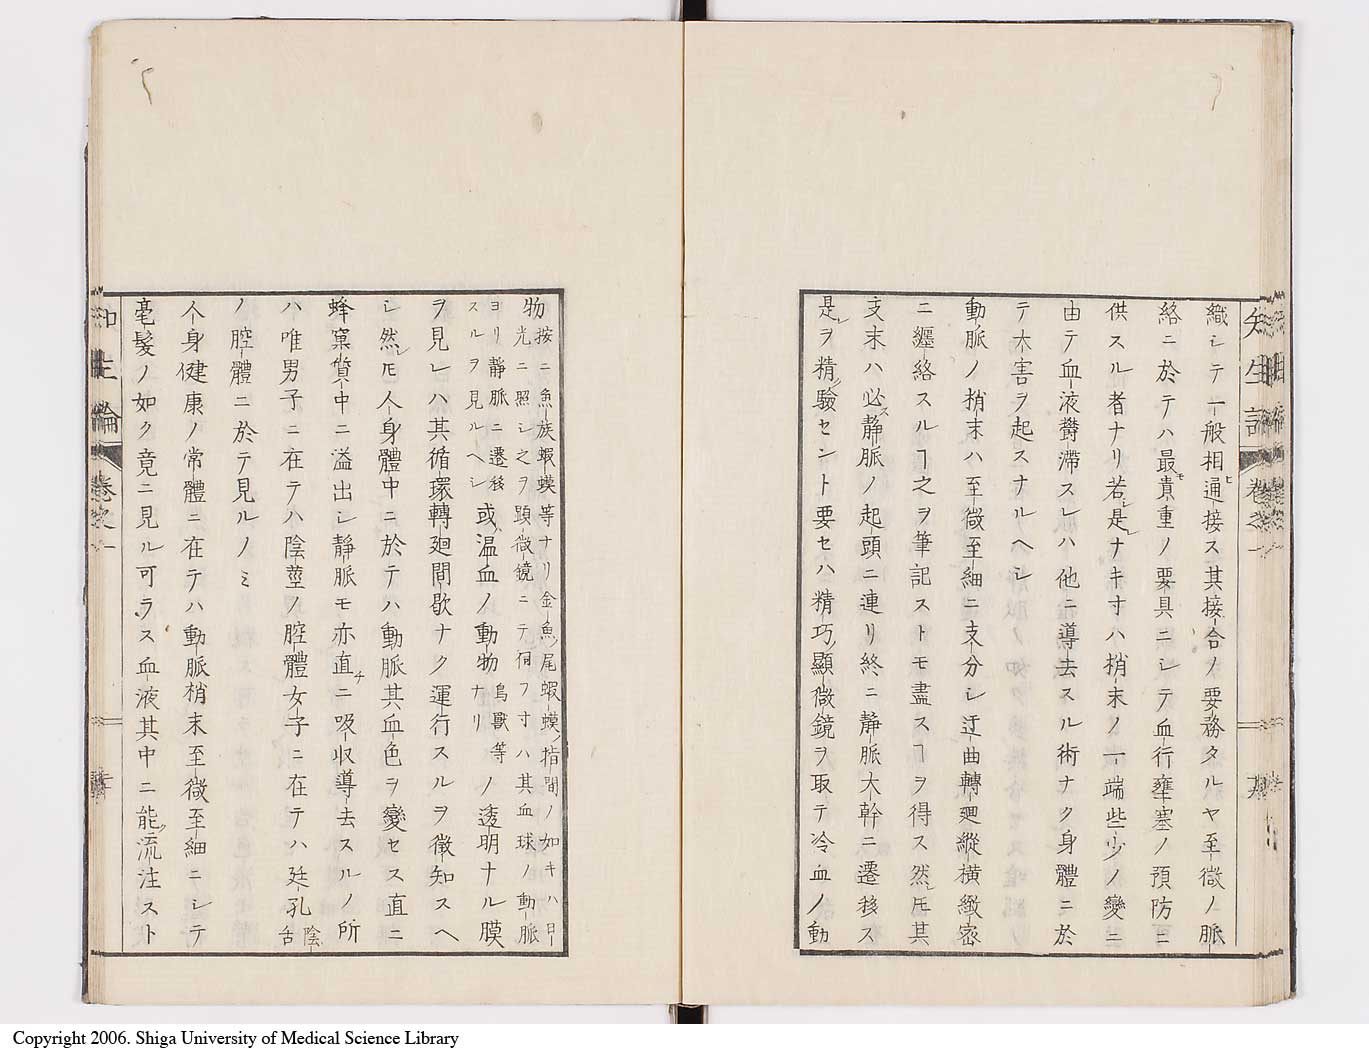 知生論 卷之一 十九
織シテ一般相通接ス其接合ノ要務タルヤ至微ノ脈
絡ニ於テハ最モ貴重ノ要具ニシテ血行壅塞ノ預防ニ
供スル者ナリ若シ是レナキ寸ハ梢末ノ一端些少ノ變ニ
由テ血液欝滞スレハ他ニ導去スル術ナク身體ニ於
テ大害ヲ起スナルヘシ
動脈ノ梢末ハ至微至細ニ支分シ迂曲轉廻縱横緻密
ニ纒絡スルヿ之ヲ筆記ストモ盡スヿヲ得ス然レ𪜈其
支末ハ必ス静脈ノ起頭ニ連リ終ニ静脈大幹ニ遷移ス
是レヲ精驗セント要セハ精巧ノ顯微鏡ヲ取テ冷血ノ動
物按ニ魚族蝦蟆等ナリ金魚ノ尾蝦蟆ノ指間ノ如キハ日
光ニ照シ之ヲ顕微鏡ニテ伺フ寸ハ其血球ノ動脈
ヨリ静脈ニ遷移
スルヲ見ルヘシ或ハ温血ノ動物鳥獸等ナリノ透明ナル膜
ヲ見レハ其循環轉廻間歇ナク運行スルヲ徴知スヘ
シ然レ𪜈人身體中ニ於テハ動脈其血色ヲ變セス直ニ
蜂窠質中ニ溢出シ静脈モ亦直チニ吸収導去スルノ所
ハ唯男子ニ在テハ陰莖ノ腔體女子ニ在テハ廷孔陰舌
ノ腔體ニ於テ見ルノミ
人身健康ノ常體ニ在テハ動脈梢末至微至細ニシテ
毫髪ノ如ク竟ニ見ル可ラス血液其中ニ能ク流注スト
知生論 卷之一
Copyright 2006. Shiga University of Medical Science Library